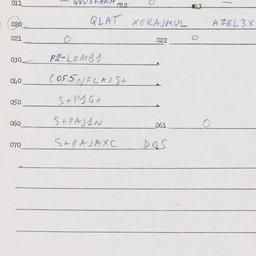 011 — QVUSFARA 012 O 013 —
020 QLAT XOKAJMUL AZEL3X
021 O 022 O
030 P2-LOMB1
040 CO55NFLAJS+
050 S+P1G+
060 S+PAJ1N 061 O
070 S+PAJAXC DQ5